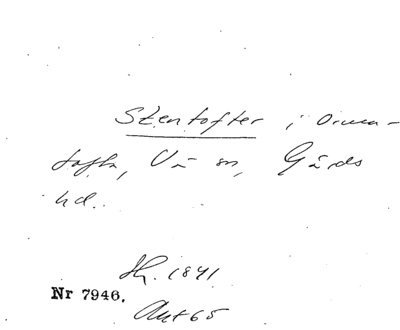 Stentofter i Orma-
tofta, Vä sn, Gärds
hd.
Sk. 1841
Nr 7946.
Akt 65